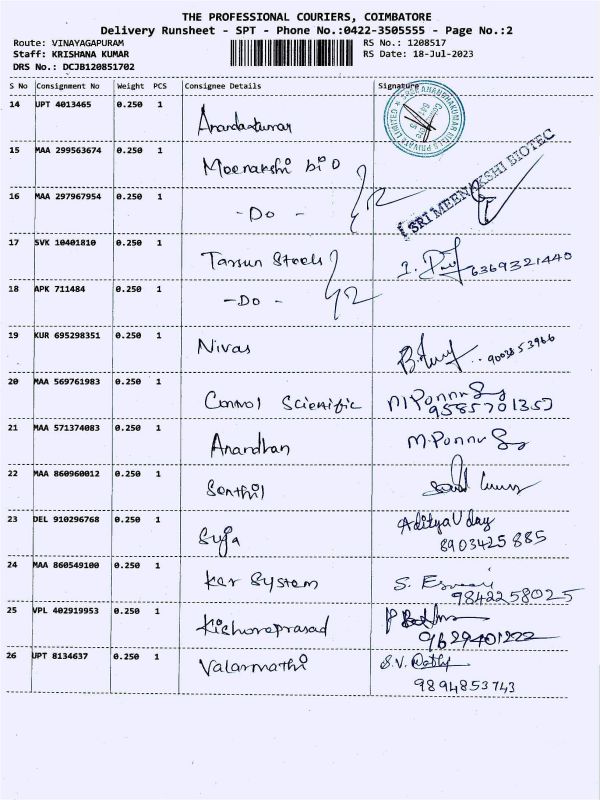 THE PROFESSIONAL COURIERS, COIMBATORE
Delivery Runsheet - SPT - Phone No.:0422-3505555 - Page No.:2
Route: VINAYAGAPURAM RS No.: 1208517
Staff: KRISHANA KUMAR RS Date: 18-Jul-2023
DRS No.: DCJB120851702
S No Consignment No Weight PCS Consignee Details Signature
14 UPT 4013465 0.250 1 Anandakumar
15 MAA 299563674 0.250 1 Meenakshi bio
SRI MEENAKSHI BIOTEC
16 MAA 297967954 0.250 1 -Do-
17 SVK 10401810 0.250 1 Tarrun Steels 6369321440
18 APK 711484 0.250 1 -Do-
19 KUR 695298351 0.250 1 Nivas
20 MAA 569761983 0.250 1 Control Scientific M Ponnu
9585701357
21 MAA 571374083 0.250 1 Anandhan M.Ponnu
22 MAA 860960012 0.250 1 Senthil
23 DEL 910296768 0.250 1 Suja Aditya Uday
8903425885
24 MAA 860549100 0.250 1 kar System S. Eswari
9842258025
25 VPL 402919953 0.250 1 Kishoreprasad
9629401222
26 UPT 8134637 0.250 1 Valarmathi S.V.
9894853743